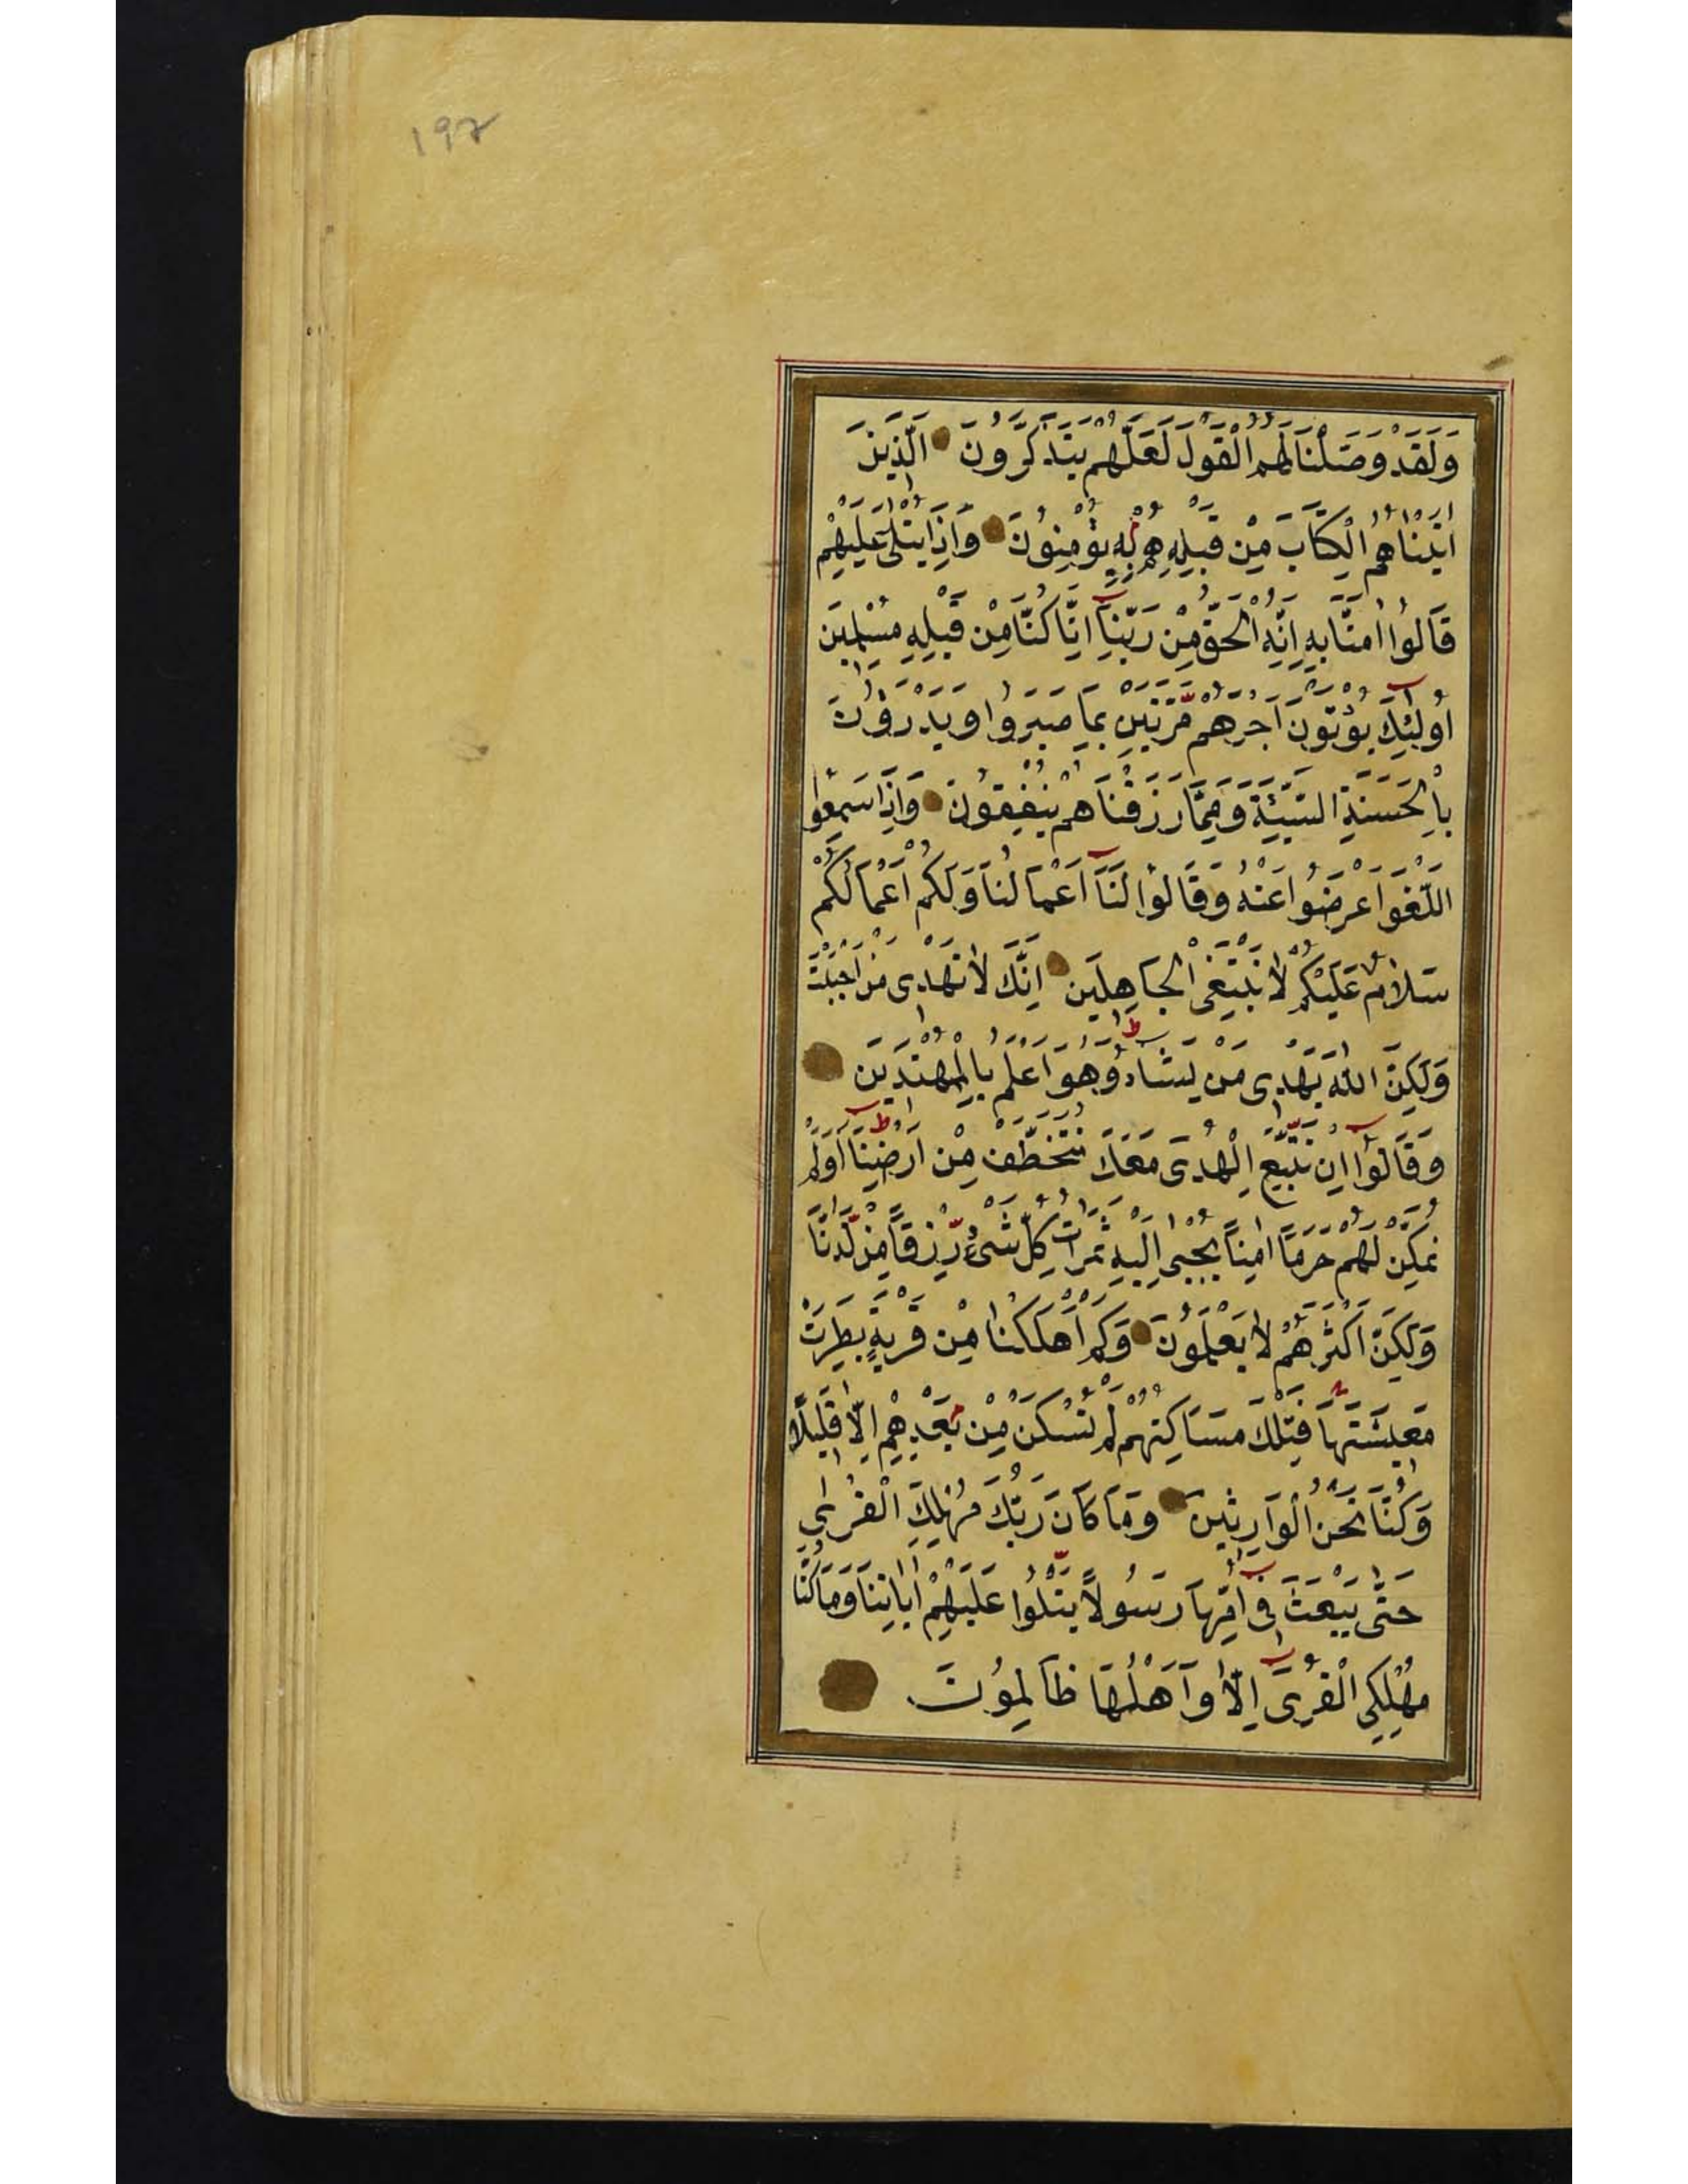 ۱۹۲
وَلَقَدْ وَصَّلْنَا لَهُمُ الْقَوْلَ لَعَلَّهُمْ يَتَذَكَّرُونَ الَّذِينَ
اٰتَيْنَاهُمُ الْكِتَابَ مِنْ قَبْلِهِ هُمْ بِهِ يُؤْمِنُونَ وَاِذَا يُتْلٰى عَلَيْهِمْ
قَالُوا اٰمَنَّا بِهِ اِنَّهُ الْحَقُّ مِنْ رَبِّنَا اِنَّا كُنَّا مِنْ قَبْلِهِ مُسْلِمِينَ
اُولٰئِكَ يُؤْتَوْنَ اَجْرَهُمْ مَّرَّتَيْنِ بِمَا صَبَرُوا وَيَدْرَؤُنَ
بِالْحَسَنَةِ السَّيِّئَةَ وَمِمَّا رَزَقْنَاهُمْ يُنْفِقُونَ وَاِذَا سَمِعُوا
اللَّغْوَ اَعْرَضُوا عَنْهُ وَقَالُوا لَنَا اَعْمَالُنَا وَلَكُمْ اَعْمَالُكُمْ
سَلَامٌ عَلَيْكُمْ لَا نَبْتَغِى الْجَاهِلِينَ اِنَّكَ لَا تَهْدِى مَنْ اَحْبَبْتَ
وَلٰكِنَّ اللّٰهَ يَهْدِى مَنْ يَشَاءُ وَهُوَ اَعْلَمُ بِالْمُهْتَدِينَ
وَقَالُوا اِنْ نَتَّبِعِ الْهُدٰى مَعَكَ نُتَخَطَّفْ مِنْ اَرْضِنَا اَوَلَمْ
نُمَكِّنْ لَهُمْ حَرَمًا اٰمِنًا يُجْبٰى اِلَيْهِ ثَمَرَاتُ كُلِّ شَىْءٍ رِّزْقًا مِنْ لَّدُنَّا
وَلٰكِنَّ اَكْثَرَهُمْ لَا يَعْلَمُونَ وَكَمْ اَهْلَكْنَا مِنْ قَرْيَةٍ بَطِرَتْ
مَعِيشَتَهَا فَتِلْكَ مَسَاكِنُهُمْ لَمْ تُسْكَنْ مِنْ بَعْدِهِمْ اِلَّا قَلِيلًا
وَكُنَّا نَحْنُ الْوَارِثِينَ وَمَا كَانَ رَبُّكَ مُهْلِكَ الْقُرٰى
حَتّٰى يَبْعَثَ فِى اُمِّهَا رَسُولًا يَتْلُوا عَلَيْهِمْ اٰيَاتِنَا وَمَا كُنَّا
مُهْلِكِى الْقُرٰى اِلَّا وَاَهْلُهَا ظَالِمُونَ